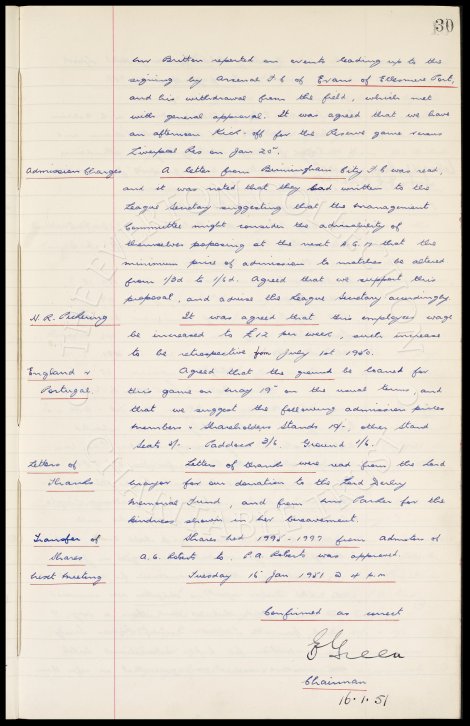 30
Mr Britton reported on events leading up to the
signing by Arsenal F C of Evans of Ellesmere Port,
and his withdrawal from the field, which met
with general approval. It was agreed that we have
an afternoon Kick-off for the Reserve game versus
Liverpool Res on Jan 20th.
Admission Charges A letter from Birmingham City F C was read,
and it was noted that they had written to the
League Secretary suggesting that the Management
Committee might consider the advisability of
themselves proposing at the next A.G.M that the
minimum price of admission to matches be altered
from 1/3d to 1/6d. Agreed that we support this
proposal, and advise the League Secretary accordingly.
H. R. Pickering It was agreed that this employees wage
be increased to £12 per week, such increase
to be retrospective from July 1st 1950.
England v Agreed that the ground be loaned for
Portugal. this game on May 19th on the usual terms, and
that we suggest the following admission prices
Members & Shareholders Stands 10/-, other Stand
Seats 5/-. Paddock 3/6. Ground 1/6.
Letters of Letters of thanks were read from the Lord
Thanks Mayor for our donation to the Lord Derby
Memorial Fund, and from Mrs Parker for the
kindness shown in her bereavement.
Transfer of Shares Nos 1995-1997 from Admstors of
Shares A. G. Roberts to P A Roberts was approved.
Next Meeting Tuesday 16th Jan 1951 @ 4 p.m
Confirmed as correct
E Green
Chairman
16.1.51